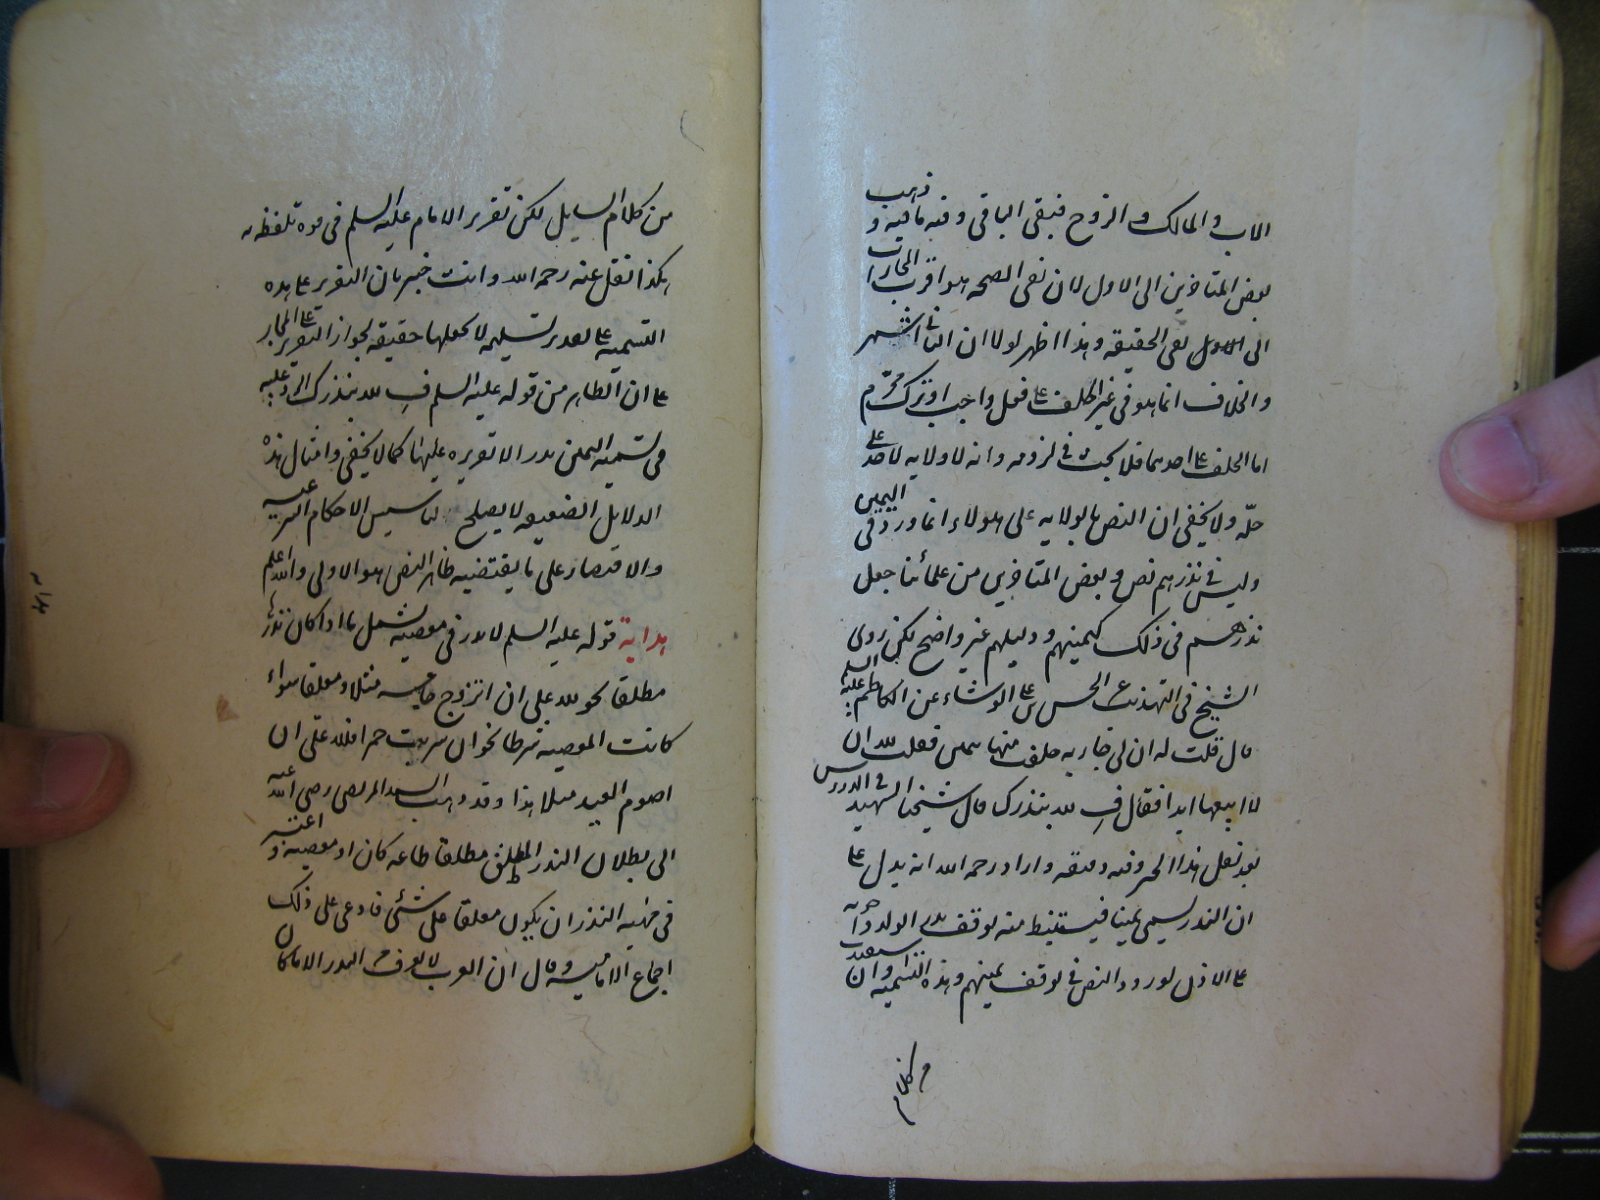 الاب والمالك والزوج فيبقى الباقي وفيه ما فيه وذهب
بعض المتاخرين الى الاول لان نفي الصحه هو اقرب المجازات
الى الاول نفي الحقيقه وهذا اظهر لولا ان الثاني اشهر
والخلاف انما هو في غير الحلف على فعل واجب او ترك محرم
اما الحلف على احدهما فلا بحث في لزومه وانه لا ولايه لاحد على
حله ولا يخفى ان النص بالولايه على هولاء انما ورد في اليمين
وليس في نذرهم نص وبعض المتاخرين من علمائنا جعل
نذرهم في ذلك كيمينهم ودليلهم غير واضح لكن روى
الشيخ في التهذيب عن الحسن بن على الوشاء عن الكاظم عليه السلم
قال قلت له ان لى جاريه حلفت منها بيمين فقلت لله ان
لا ابيعها ابدا فقال فِ لله بنذرك قال شيخنا الشهيد في الدروس
بعد نقل هذا الخبر وفيه دقيقه واراد رحمه الله انه يدل على
ان النذر يسمى يمينا فيستنبط منه توقف نذر الولد واخويه
على الاذن لورود النص في توقف يمينهم وهذه التسميه وان استفيدت
من كلام
من كلام السايل لكن تقرير الامام عليه السلم في قوه تلفظه به
هكذا نقل عنه رحمه الله وانت خبير بان التقرير على هذه
التسميه على تقدير تسليمه لا يجعلها حقيقه لجواز التقرير على المجاز
على ان الظاهر من قوله عليه السلم فِ لله بنذرك الرد عليه
في تسميه اليمين نذرا لا تقريره عليها كما لا يخفى وامثال هذه
الدلايل الضعيفه لا يصلح لتاسيس الاحكام الشرعيه
والاقتصار على ما يقتضيه ظاهر النص هو الاولى والله اعلم
هداية قوله عليه السلم لا نذر في معصيه يشمل ما اذا كان نذرها
مطلقا نحو لله على ان اتزوج خامسه مثلا ومعلقا سواء
كانت المعصيه شرطا نحو ان شربت خمرا فلله على ان
اصوم العيد مثلا هذا وقد ذهب السيد المرتضى رضى الله عنه
الى بطلان النذر المطلق مطلقا طاعه كان او معصيه واعتبر
في مهيه النذر ان يكون معلقا على شئ وادعى على ذلك
اجماع الاماميه وقال ان العرب لا يعرف من النذر الا ما كان